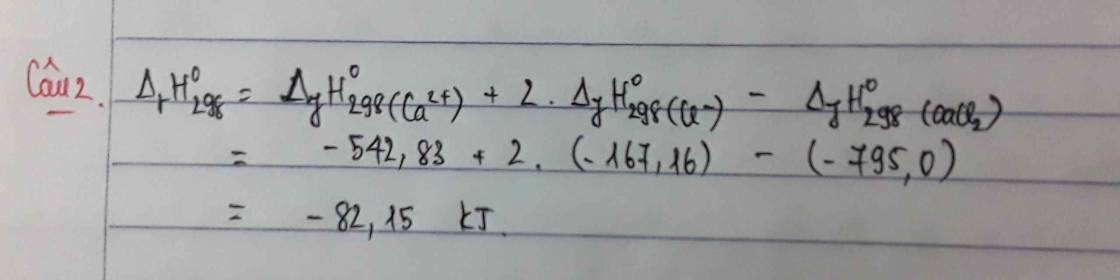 Câu 2. ΔrH⁰298 = ΔfH⁰298 (Ca²⁺) + 2. ΔfH⁰298 (Cl⁻) - ΔfH⁰298 (CaCl₂)
= - 542,83 + 2. (-167,16) - (-795,0)
= - 82,15 kJ.